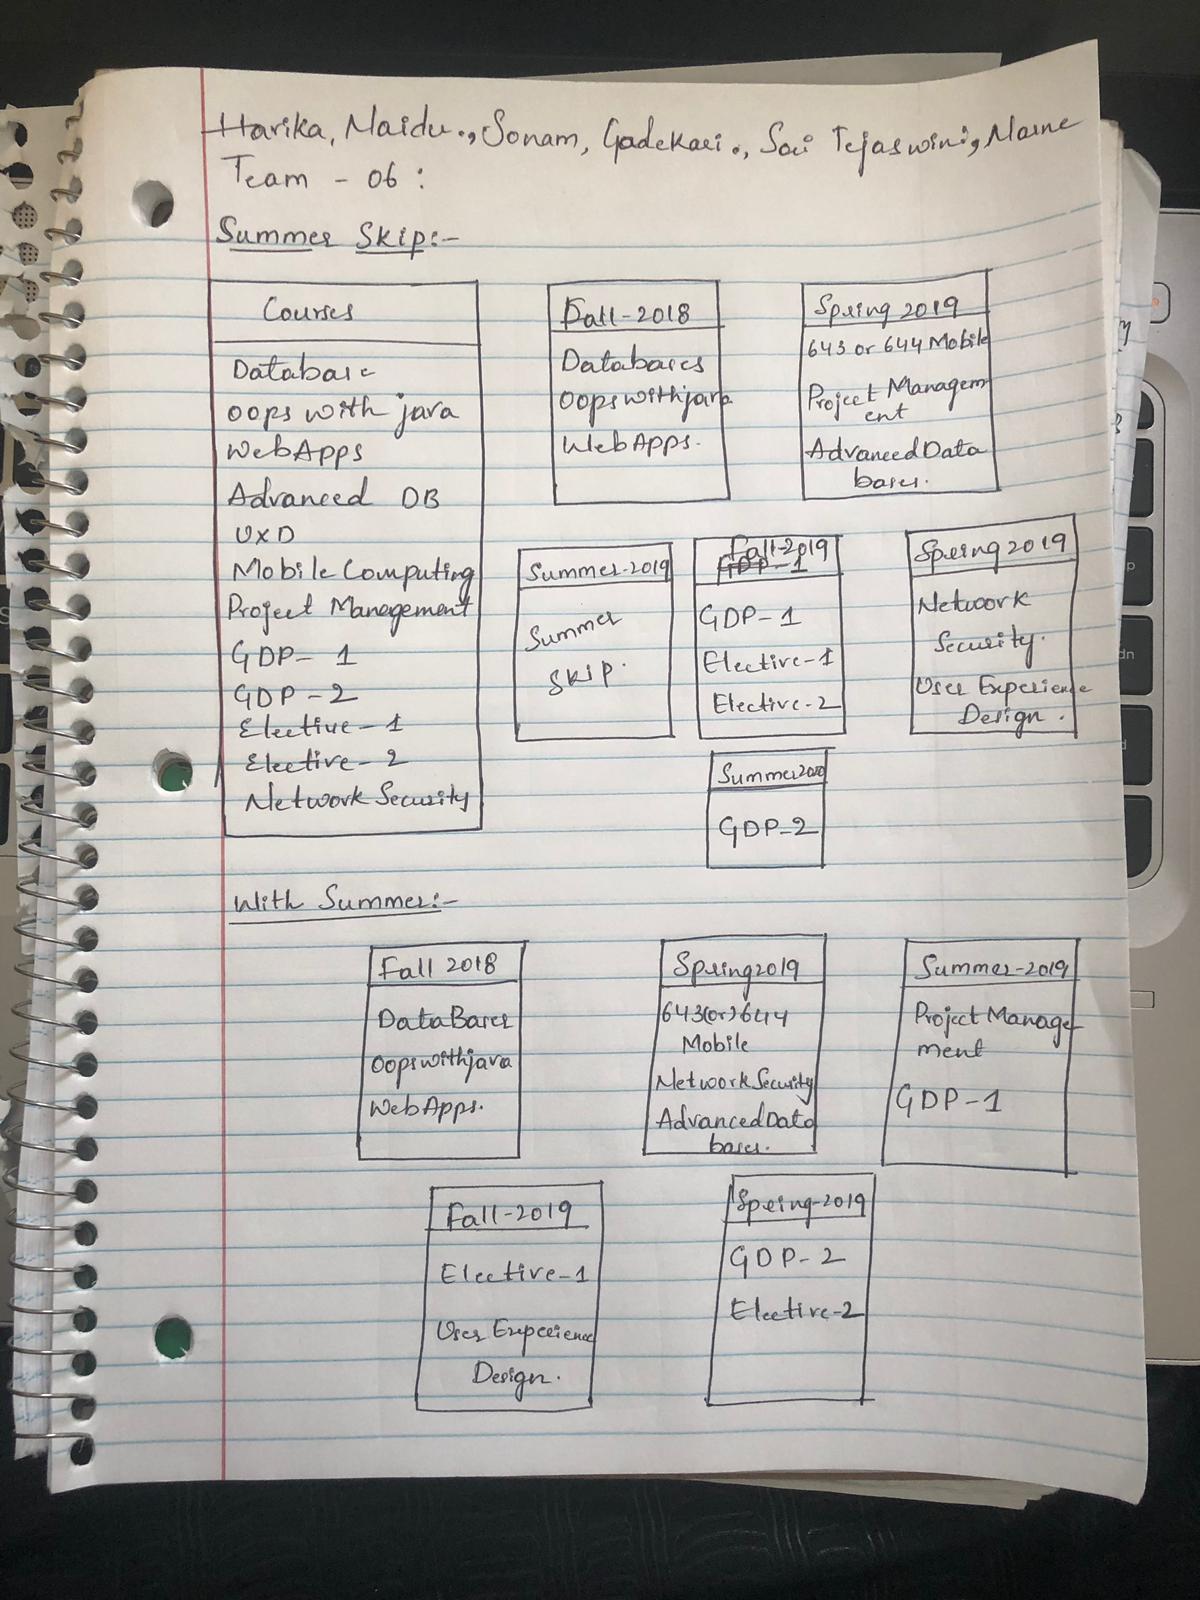 Harika, Naidu., Sonam, Gadekari., Sai Tejaswini,
Team - 06 :
Summer Skip:-
Courses
Database
OOPS with java
WebApps
Advanced DB
UXD
Mobile Computing
Project Management
GDP- 1
GDP-2
Elective-1
Elective-2
Network Security
Fall-2018
Databases
OOPs withjava
WebApps.
Spring 2019
643 or 644 Mobile
Project Managem
ent
Advanced Data
bases.
Summer-2019
Summer
SKIP.
Fall-2019
GDP-1
GDP-1
Elective-1
Elective-2
Spring 2019
Network
Security.
User Experience
Design.
Summer2020
GDP-2
With Summer:-
Fall 2018
DataBases
Oopswithjava
WebApps.
Spring2019
643(or)644
Mobile
Network Security
Advanced Data
bases.
Summer-2019
Project Manage
ment
GDP-1
Fall-2019
Elective-1
User Experience
Design.
Spring-2019
GDP-2
Elective-2